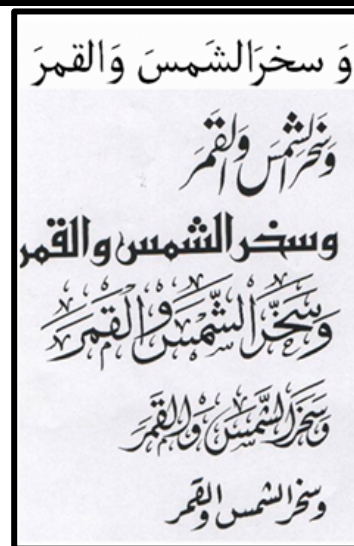 وَ سخرَالشَمسَ وَالقمرَ
وَسَخَّرَالشَّمسَ وَالقَمَرَ
وسخر الشمس والقمر
وَسَخَّرَ الشَّمْسَ وَالْقَمَرَ
وَسَخَّرَالشَّمْسَ وَالْقَمَرَ
وسخر الشمس والقمر